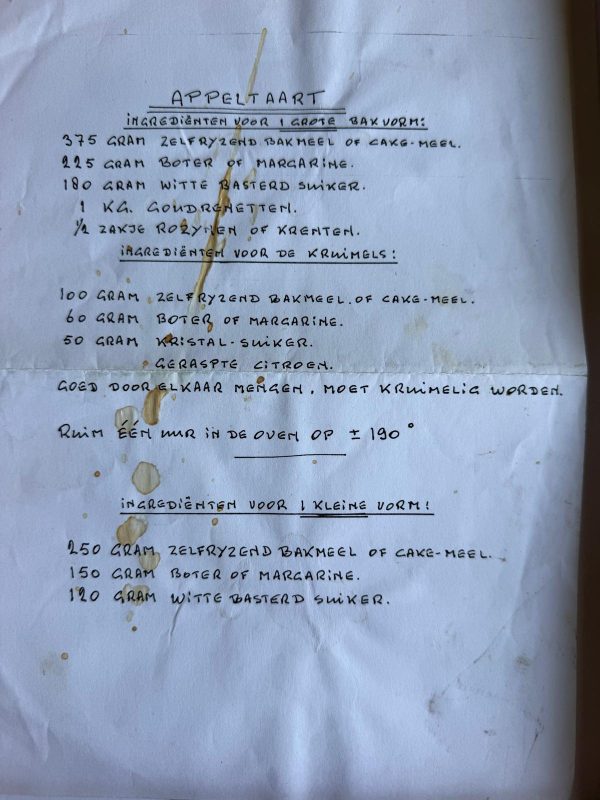 APPELTAART
INGREDIËNTEN VOOR 1 GROTE BAKVORM:
375 GRAM ZELFRYZEND BAKMEEL OF CAKE-MEEL.
225 GRAM BOTER OF MARGARINE.
180 GRAM WITTE BASTERD SUIKER.
1 KG. GOUDRENETTEN.
½ ZAKJE ROZYNEN OF KRENTEN.
INGREDIËNTEN VOOR DE KRUIMELS:
100 GRAM ZELFRYZEND BAKMEEL. OF CAKE-MEEL.
60 GRAM BOTER OF MARGARINE.
50 GRAM KRISTAL-SUIKER.
GERASPTE CITROEN.
GOED DOOR ELKAAR MENGEN, MOET KRUIMELIG WORDEN.
RUIM ÉÉN UUR IN DE OVEN OP ± 190°
INGREDIËNTEN VOOR 1 KLEINE VORM!
250 GRAM ZELFRYZEND BAKMEEL OF CAKE-MEEL.
150 GRAM BOTER OF MARGARINE.
120 GRAM WITTE BASTERD SUIKER.